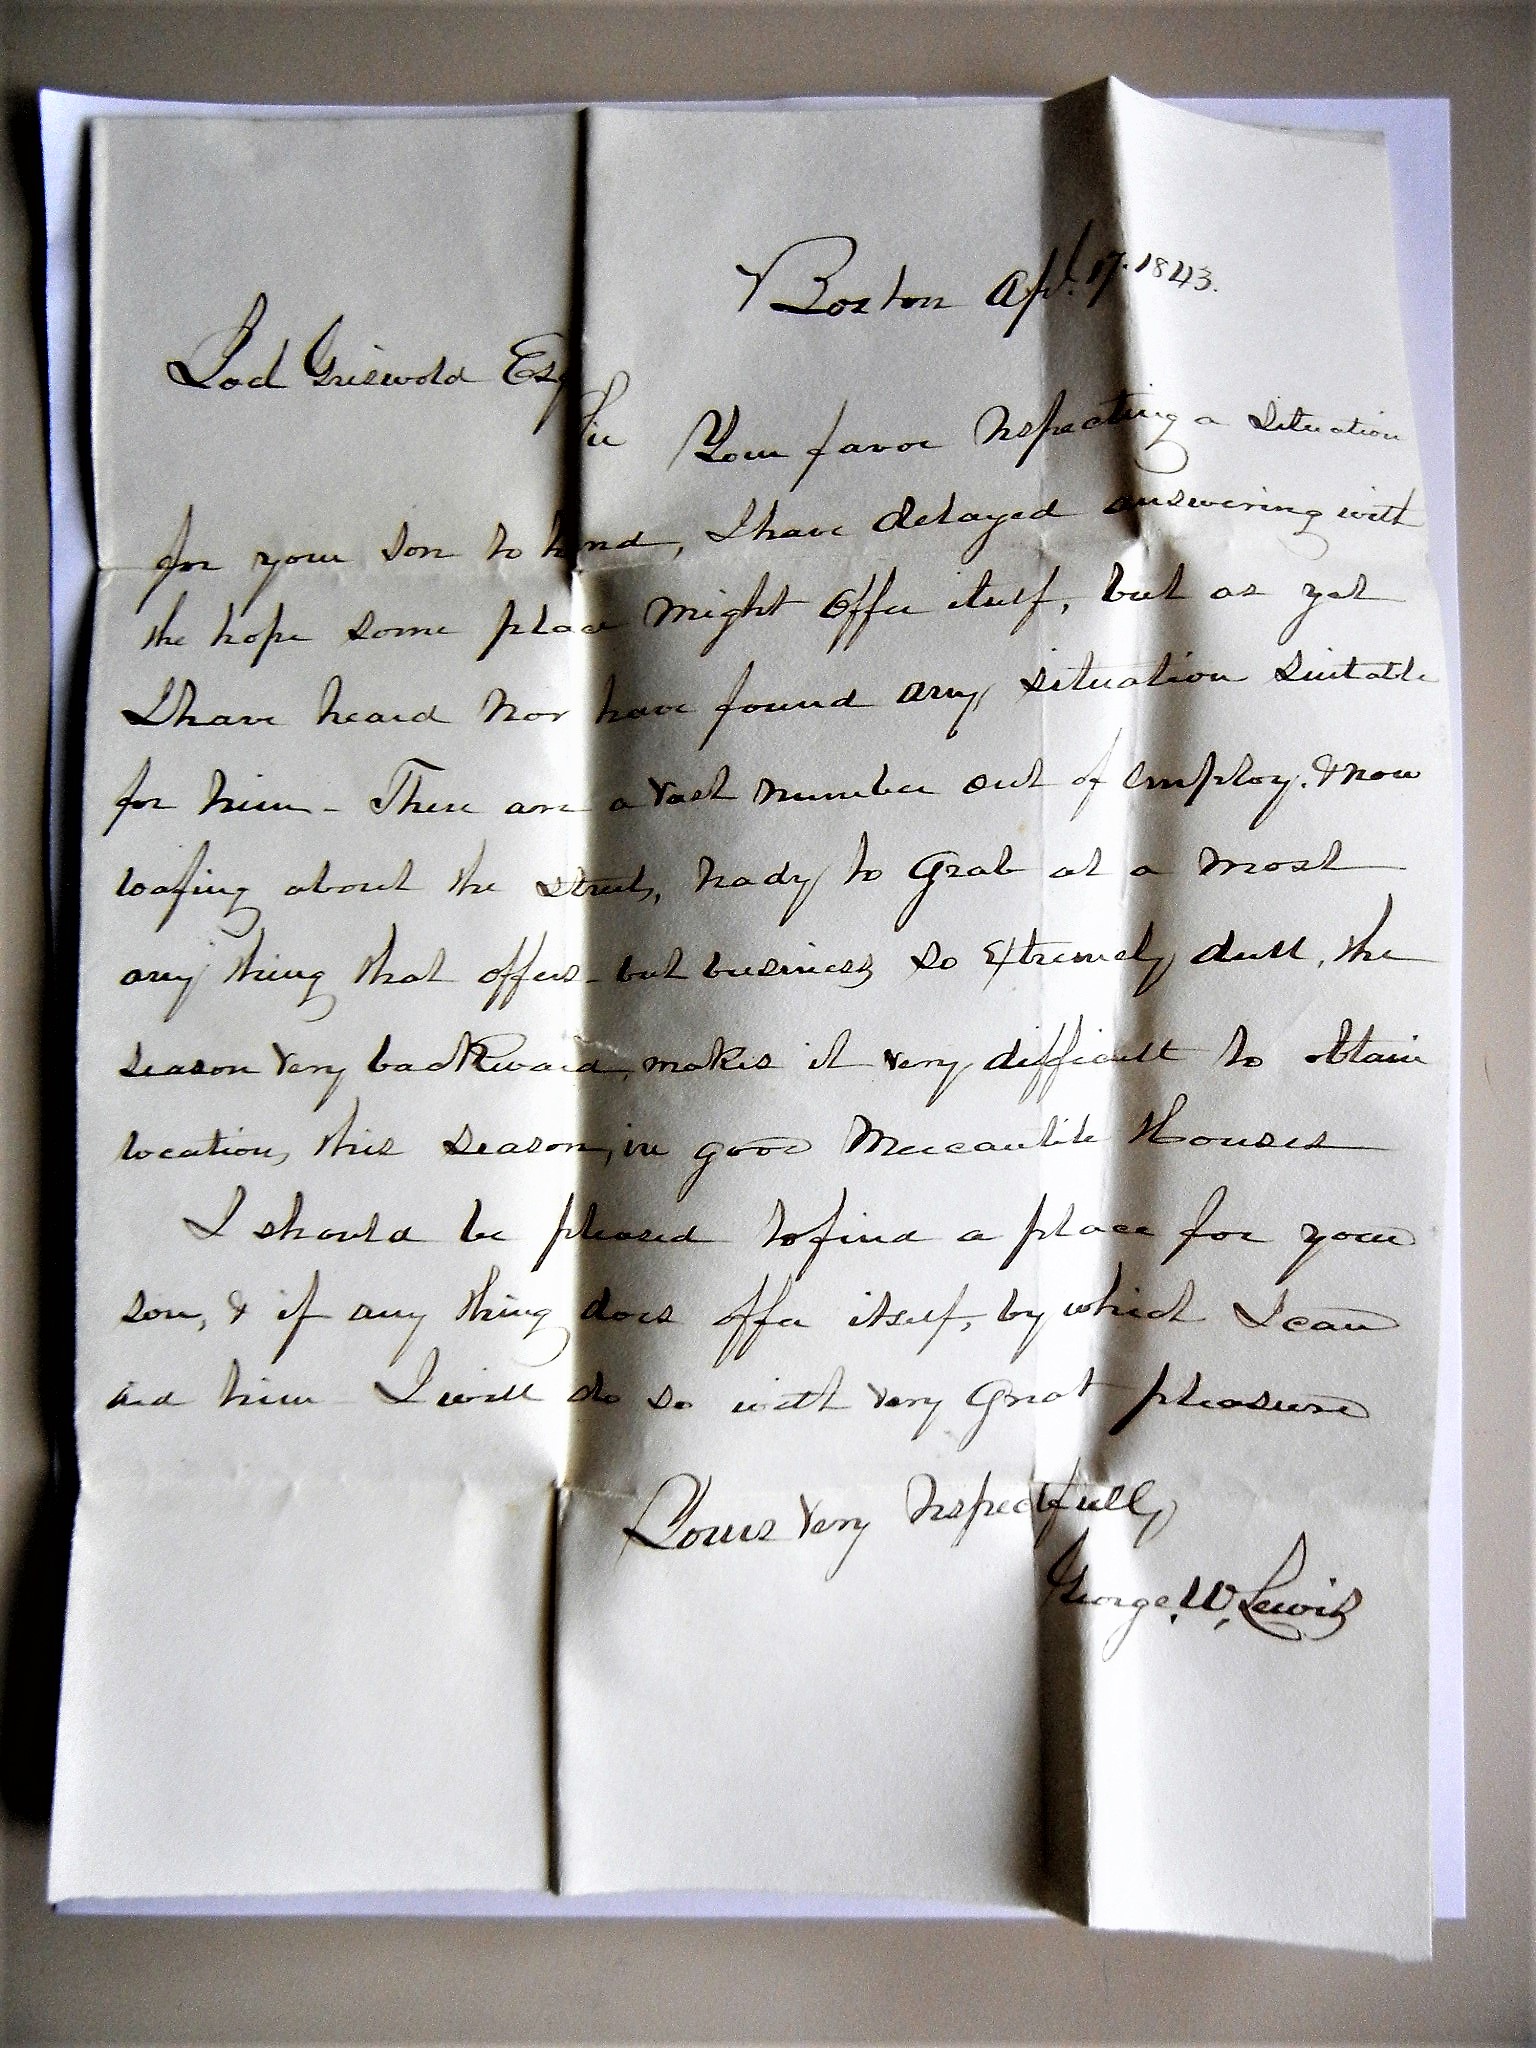 Boston Apl. 17. 1843.
Griswold Esq
Sir Your favor respecting a situation
for your son to hand, I have delayed answering with
the hope some place might offer itself, but as yet
I have heard nor have found any situation suitable
for him - There are a vast number out of employ. & now
loafing about the streets, ready to grab at a most
any thing that offers - but business so extremely dull, the
season very backward, makes it very difficult to obtain
location, this season, in good Mercantile Houses
I should be pleased to find a place for your
son, & if any thing does offer itself, by which I can
aid him I will do so with very great pleasure
Yours very respectfully
George. W, Lewis